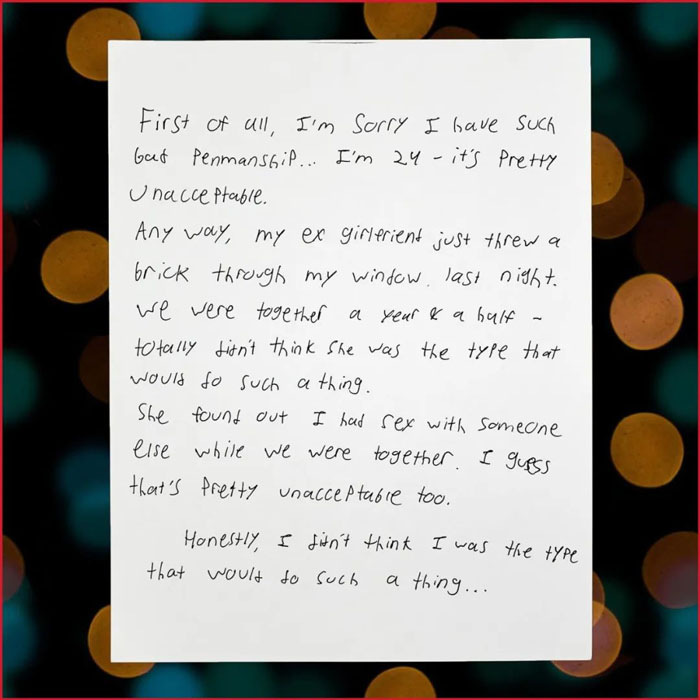 First of all, I'm Sorry I have such
bad Penmanship... I'm 24 - it's Pretty
Unacceptable.
Any way, my ex girlfrient just threw a
brick through my window. last night.
We were together a year & a half -
totally didn't think she was the type that
would do such a thing.
She found out I had sex with someone
else while we were together. I guess
that's Pretty unacceptable too.
Honestly, I didn't think I was the type
that would do such a thing...